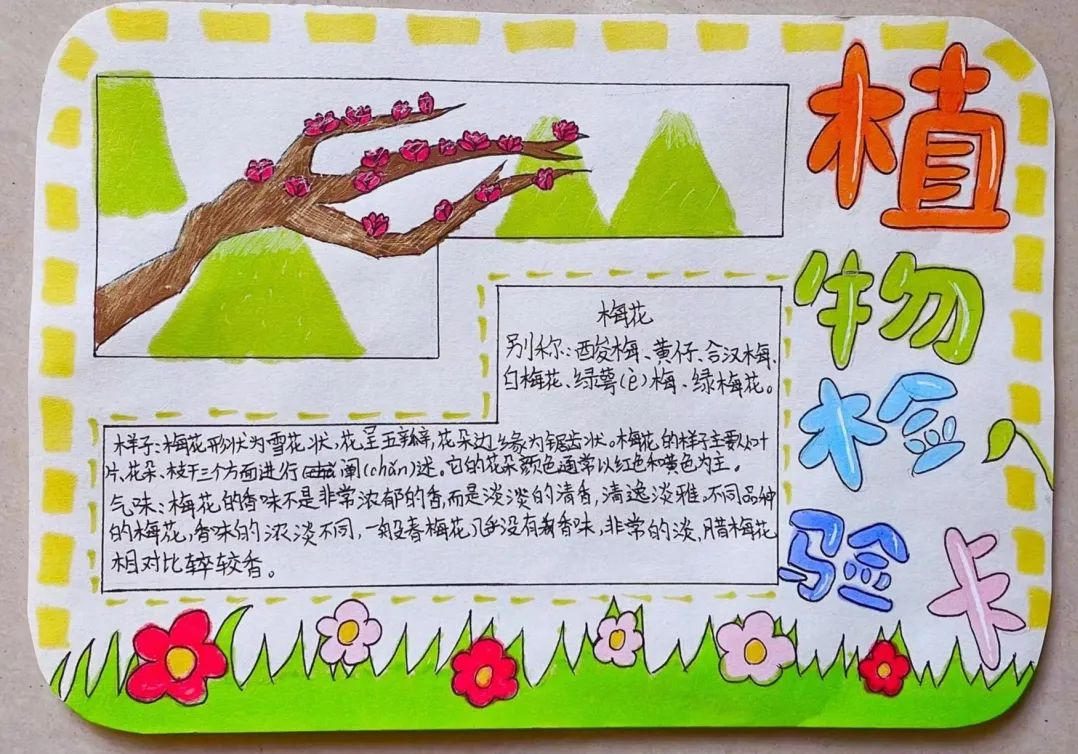 植物检验卡
梅花
别称：酸梅、黄仔、合汉梅、
白梅花、绿萼(è)梅、绿梅花。
样子：梅花形状为雪花状，花呈五瓣，花朵边缘为锯齿状。梅花的样子主要以叶
片、花朵、枝干三个方面进行阐(chǎn)述。它的花朵颜色通常以红色和黄色为主。
气味：梅花的香味不是非常浓郁的香，而是淡淡的清香，清逸淡雅。不同品种
的梅花，香味的浓淡不同，一般春梅花几乎没有香味，非常的淡，腊梅花
相对比较较香。